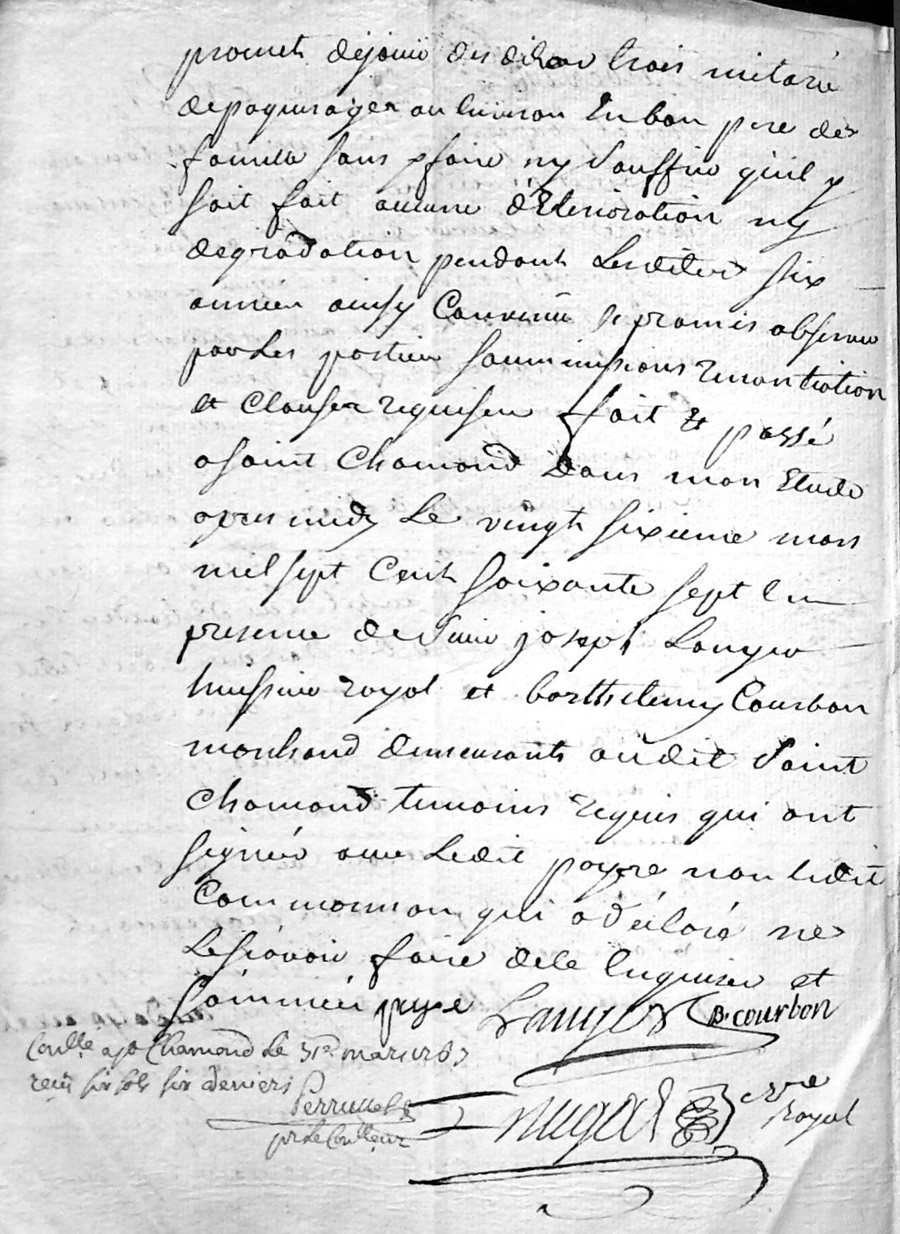 promet déjouir desdites trois mitarié
depaquerages au buisson En bon pere de
famille sans y faire ny Souffrir quil y
soit fait aucune déterioration ny
degradation pendant Lesdites six
années ainsy Convenu et promis observer
par Les parties soummissions renontiation
et clauses requises fait et passé
a saint Chamond Dans mon Etude
apres midy Le vingt sixieme mars
mil sept Cent soixante sept En
presence de Sieur joseph Langer
huissier royal et barthelemy Courbon
marchand demeurants audit Saint
Chamond temoins requis qui ont
signés avec Ledit payre non Ledit
qui a déclaré ne
Le sçavoir faire de ce Enquis et
sommé
B. courbon
Conllé a St Chamond Le 31e mars 1767
reçu six sols six deniers
pr Le Conlleur
royal